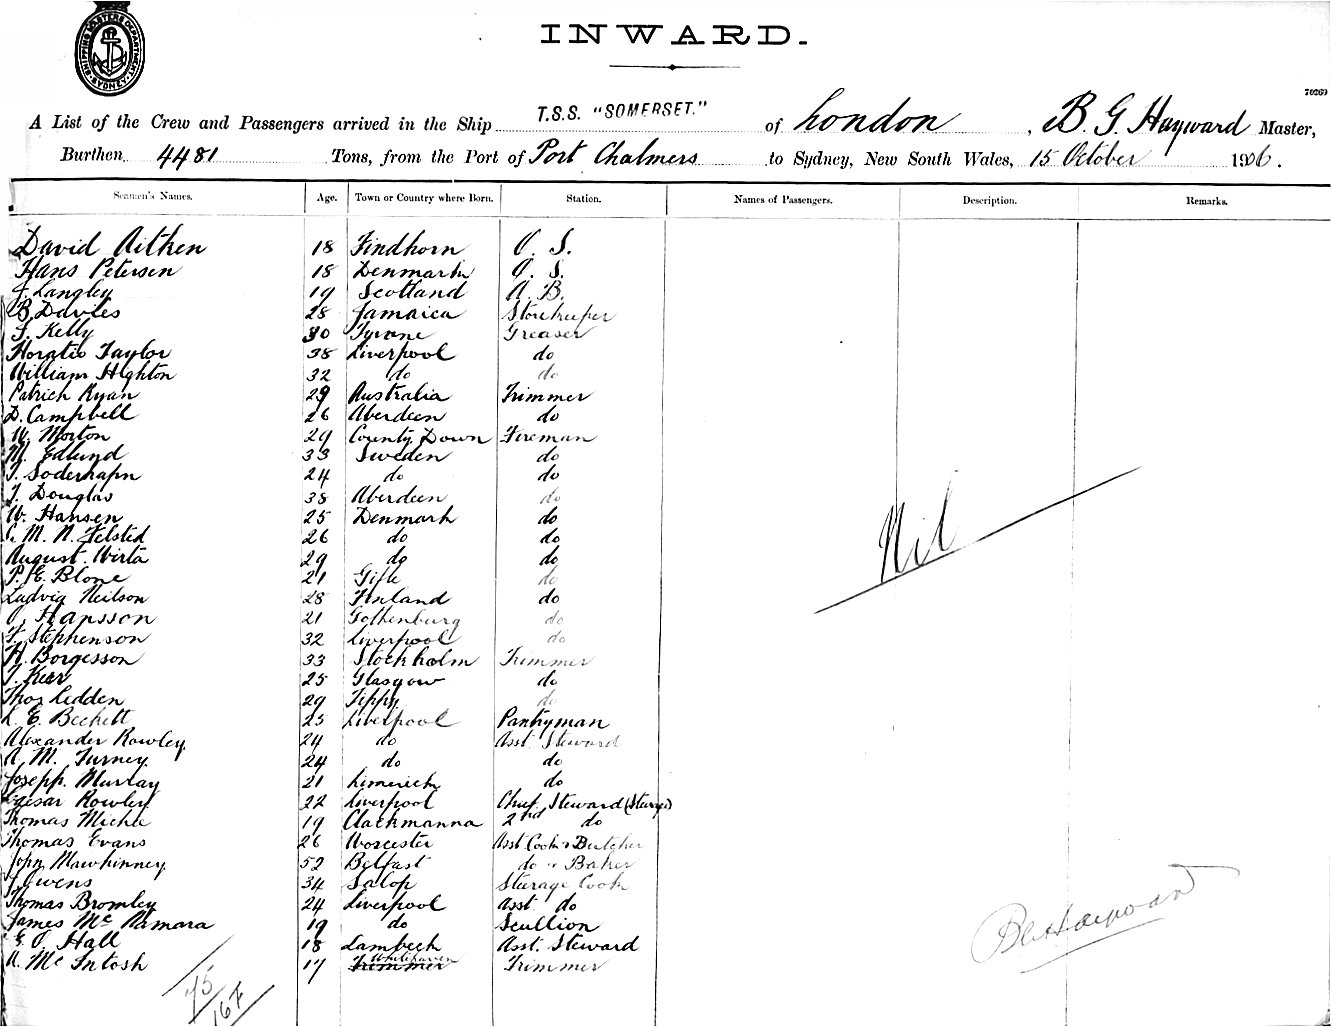 SHIPPING MASTERS DEPARTMENT. SYDNEY.
INWARD.
70269
A List of the Crew and Passengers arrived in the Ship T.S.S. "SOMERSET." of London, B. G. Hayward Master,
Burthen 4481 Tons, from the Port of Port Chalmers to Sydney, New South Wales, 15 October 1906.
Seamen's Names. Age. Town or Country where Born. Station. Names of Passengers. Description. Remarks.
David Aitken 18 Findhorn O. S.
Hans Petersen 18 Denmark O. S.
J. Langley 19 Scotland A. B.
B. Davies 28 Jamaica Storekeeper
F. Kelly 30 Tyrone Greaser
Horatio Taylor 38 Liverpool do
William Highton 32 do do
Patrick Ryan 29 Australia Trimmer
D. Campbell 26 Aberdeen do
W. Morton 29 County Down Fireman
M. Edlund 33 Sweden do
T. 24 do do
J. Douglas 38 Aberdeen do
W. Hansen 25 Denmark do
C. M. N. Felsted 26 do do
August. Wirta 29 do do
P. E. Blone 21 Gifle do
Ludvig Neilson 28 Finland do
O. Hansson 21 Gothenburg do
F. Stephenson 32 Liverpool do
H. Borgesson 33 Stockholm Trimmer
J. Kerr 25 Glasgow do
Thos Ledden 29 Tippy do
L. E. Beckett 25 Liverpool Pantryman
Alexander Rowley 24 do Asst. Steward
A. M. Turney 24 do do
Joseph Murray 21 Limerick do
Caesar Rowley 22 Liverpool Chief Steward (Sturge)
Thomas Michie 19 Clackmanna 2nd do
Thomas Evans 26 Worcester Asst Cook & Butcher
John Mawhinney 52 Belfast do & Baker
J. Owens 34 Salop Sturage Cook
Thomas Bromley 24 Liverpool Asst. do
James McNamara 19 do Scullion
E. O. Hall 18 Lambeth Asst. Steward
A. McIntosh 17 Trimmer Whitehaven Trimmer
Nil
75
167
B G Hayward